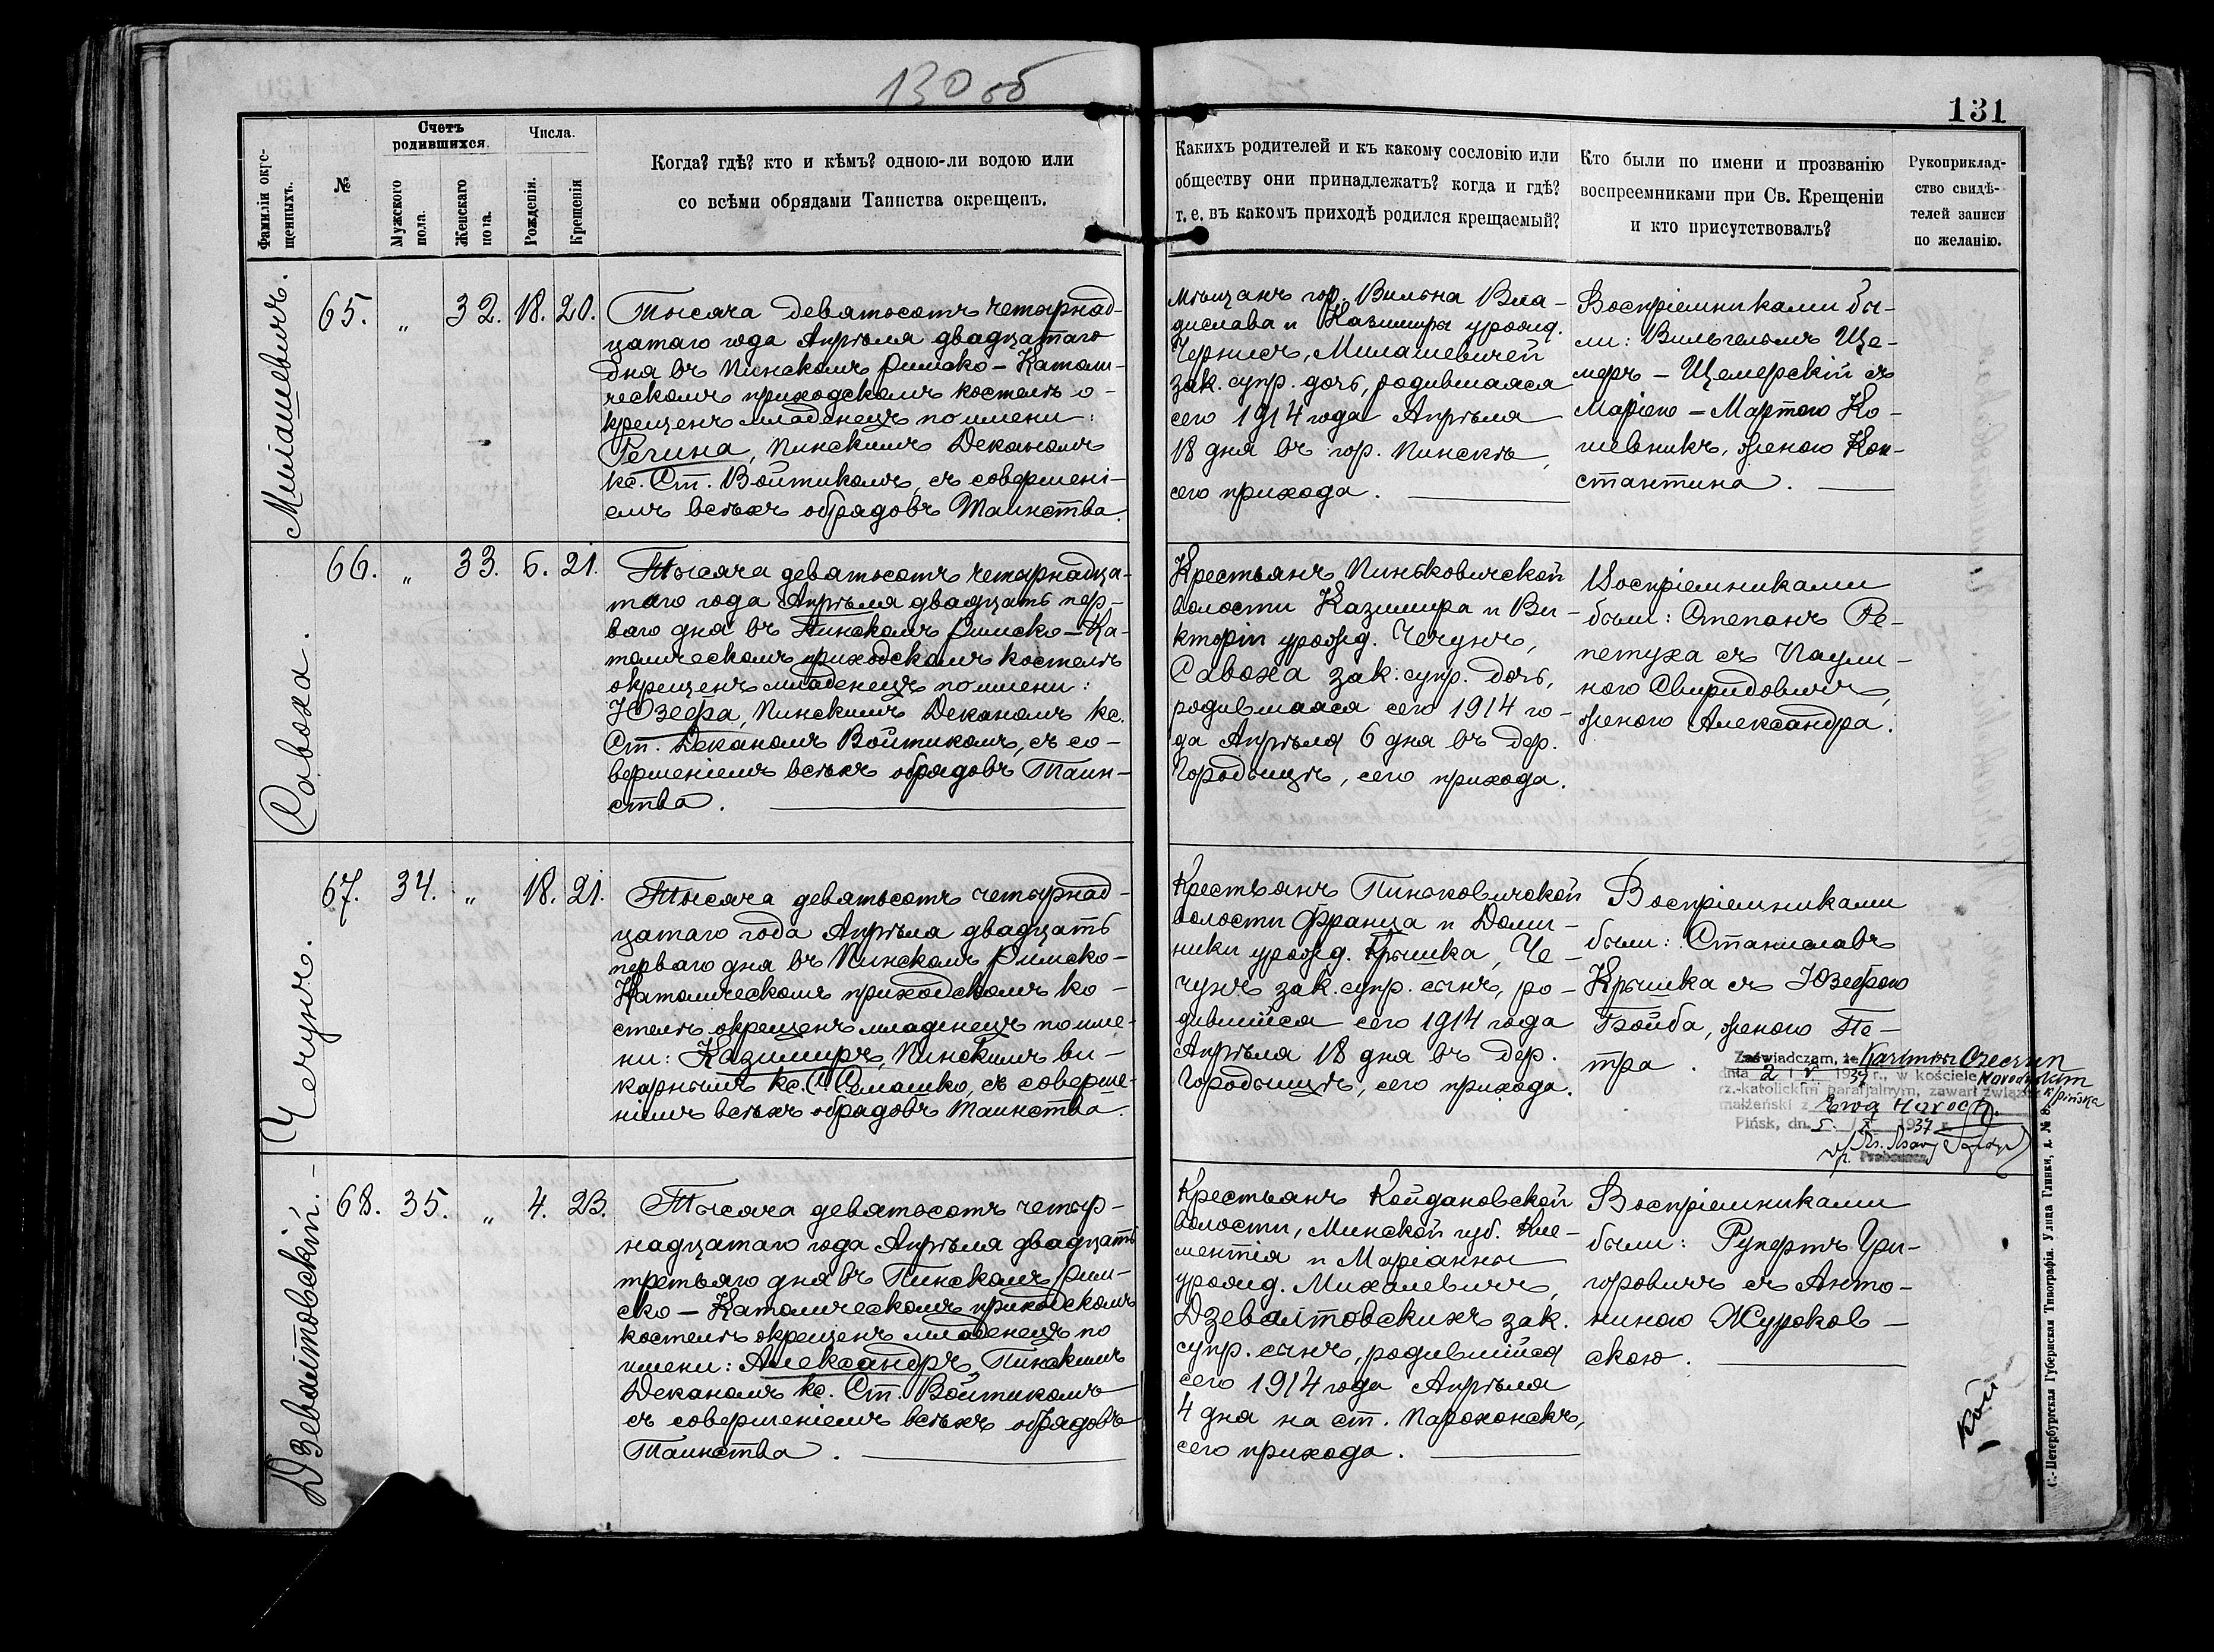 130 об
131
Фамиліи окре-
щенныхъ.
№
Счетъ
родившихся.
Мужского
пола.
Женскаго
пола.
Числа.
Рожденія.
Крещенія
Когда? гдѣ? кто и кѣмъ? одною-ли водою или
со всѣми обрядами Таинства окрещенъ.
Какихъ родителей и къ какому сословію или
обществу они принадлежатъ? когда и гдѣ?
т. е. въ какомъ приходѣ родился крещаемый?
Кто были по имени и прозванію
воспреемниками при Св. Крещеніи
и кто присутствовалъ?
Рукоприклад-
ство свидѣ-
телей записи
по желанію.
Милашевичъ.
65. " 32. 18. 20.
Тысяча девятьсотъ четырнад-
цатаго года Апрѣля двадцатаго
дня въ Пинскомъ Римско-Католи-
ческомъ приходскомъ костелѣ о-
крещенъ младенецъ по имени:
Регина, Пинскимъ Деканомъ
кс. Ст. Войтикомъ, съ совершені-
емъ всѣхъ обрядовъ Таинства.
Мѣщанъ гор. Вильна Вла-
дислава и Казимиры урожд.
Чернисъ, Милашевичей
зак. супр. дочь, родившаяся
сего 1914 года Апрѣля
18 дня въ гор. Пинскѣ,
сего прихода.
Воспріемниками бы-
ли: Вильгельмъ Ще-
меръ-Щемерскій съ
Маріею-Мартою Ко-
шевникъ, женою Кон-
стантина.
Савоха.
66. " 33. 6. 21.
Тысяча девятьсотъ четырнадца-
таго года Апрѣля двадцать пер-
ваго дня въ Пинскомъ Римско-Ка-
толическомъ приходскомъ костелѣ
окрещенъ младенецъ по имени:
Юзефа, Пинскимъ Деканомъ кс.
Ст. Деканомъ Войтикомъ, съ со-
вершеніемъ всѣхъ обрядовъ Таин-
ства.
Крестьянъ Пиньковичской
волости Казимира и Ви-
кторіи урожд. Чечунъ,
Савоха зак. супр. дочь,
родившаяся сего 1914 го-
да Апрѣля 6 дня въ дер.
Городыщѣ, сего прихода.
Воспріемниками
были: Степанъ Ре-
петуха съ Паули-
ною Свиридовичъ,
женою Александра.
Чечунъ.
67. 34. " 18. 21.
Тысяча девятьсотъ четырнад-
цатаго года Апрѣля двадцать
перваго дня въ Пинскомъ Римско-
Католическомъ приходскомъ ко-
стелѣ окрещенъ младенецъ по име-
ни: Казимиръ, Пинскимъ ви-
карнымъ кс. С. Семашко, съ соверше-
ніемъ всѣхъ обрядовъ Таинства.
Крестьянъ Пиньковичской
волости Франца и Доми-
ники урожд. Крышка, Че-
чунъ зак. супр. сынъ, ро-
дившійся сего 1914 года
Апрѣля 18 дня въ дер.
Городыщѣ, сего прихода.
Воспріемниками
были: Станиславъ
Крышка съ Юзефою
Бойба, женою Пе-
тра.
Zaświadczam, że Kazimierz Czeczun
dnia 2 V 1937 r., w kościele
rz.-katolickim parafjalnym, zawarł związek
małżeński z Ewą
Pińsk, dn. 5. X 1937 r.
Proboszcz
Дзевалтовскій.
68. 35. " 4. 23.
Тысяча девятьсотъ четыр-
надцатаго года Апрѣля двадцать
третьяго дня въ Пинскомъ Рим-
ско-Католическомъ приходскомъ
костелѣ окрещенъ младенецъ по
имени: Александръ, Пинскимъ
Деканомъ кс. Ст. Войтикомъ
съ совершеніемъ всѣхъ обрядовъ
Таинства.
Крестьянъ Койдановской
волости, Минской губ. Кле-
ментія и Маріанны
урожд. Михалевичъ,
Дзевалтовскихъ зак.
супр. сынъ, родившійся
сего 1914 года Апрѣля
4 дня на ст. Парохонскъ,
сего прихода.
Воспріемниками
были: Рупертъ Гри-
горовичъ съ Анто-
ниною Жураков-
скою.
С.-Петербургская Губернская Типографія. Улица Глинки, д. № 8.